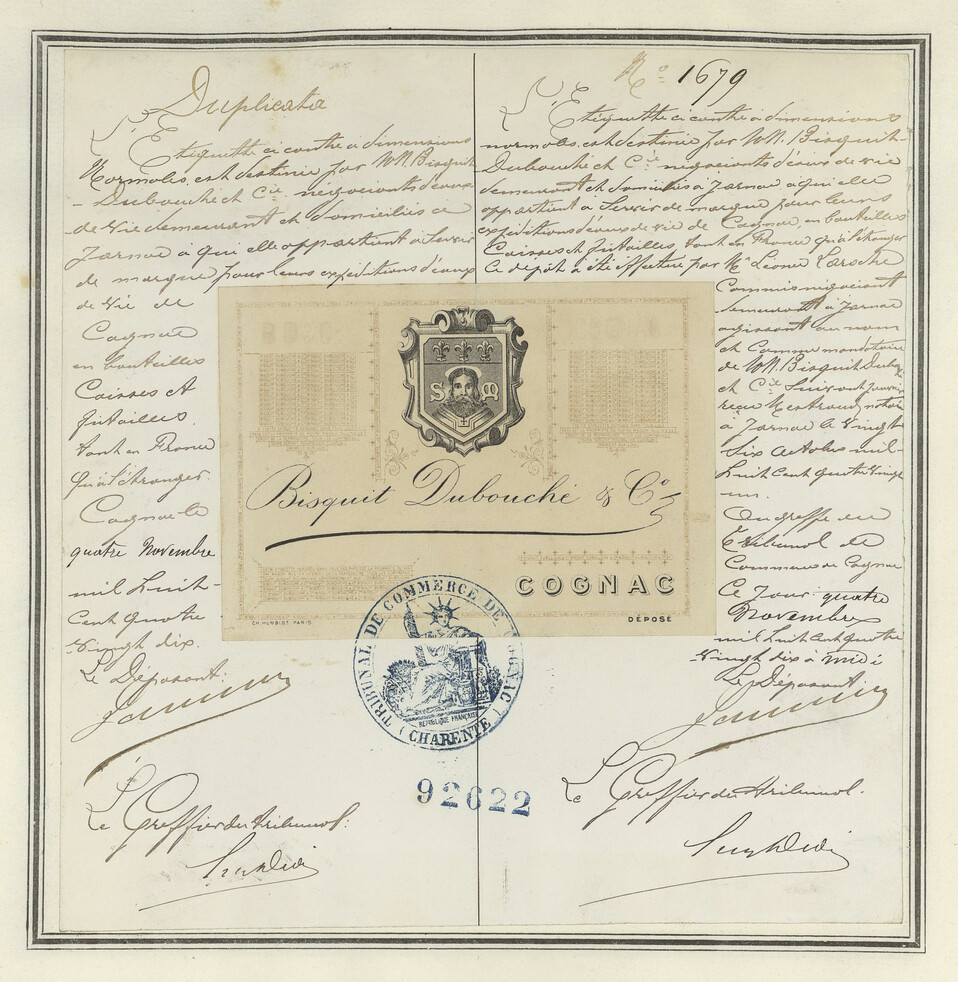 Duplicata
L'Etiquette ci contre à dimensions
Normales, est destinée par MM. Bisquit
-Dubouché et Cie négociants d'eaux
de vie demeurant et domiciliés à
Jarnac à qui elle appartient à servir
de marque pour leurs expéditions d'eaux
de vie de
Cognac
en bouteilles
Caisses et
futailles.
tant en France
qu'à l'étranger.
Cognac le
quatre Novembre
mil huit-
cent quatre
vingt dix.
Le Déposant.
Le Greffier du tribunal.
No 1679
L'Etiquette ci contre à dimensions
normales, est destinée par MM. Bisquit-
Dubouché et Cie négociants d'eaux de vie
demeurant et domiciliés à Jarnac, à qui elle
appartient à servir de marque pour leurs
expéditions d'eaux de vie de Cognac, en bouteilles
Caisses et futailles, tant en France qu'à l'étranger
Ce dépôt a été effectué par Mr Léonce Laroche
Commis négociant
demeurant à Jarnac
agissant au nom
et comme mandataire
de MM. Bisquit Dubouché
et Cie suivant pouvoir
reçu notaire
à Jarnac le vingt
six octobre mil-
huit cent quatre vingt
un.
Au greffe du
Tribunal de
Commerce de Cognac
Ce Jour quatre
Novembre
mil huit cent quatre
vingt dix à midi
Le Déposant.
Le Greffier du tribunal.
S M
Bisquit Dubouché & Co
COGNAC
CH. HUMBLOT PARIS
DÉPOSÉ
TRIBUNAL DE COMMERCE DE COGNAC
RÉPUBLIQUE FRANÇAISE
(CHARENTE)
92622